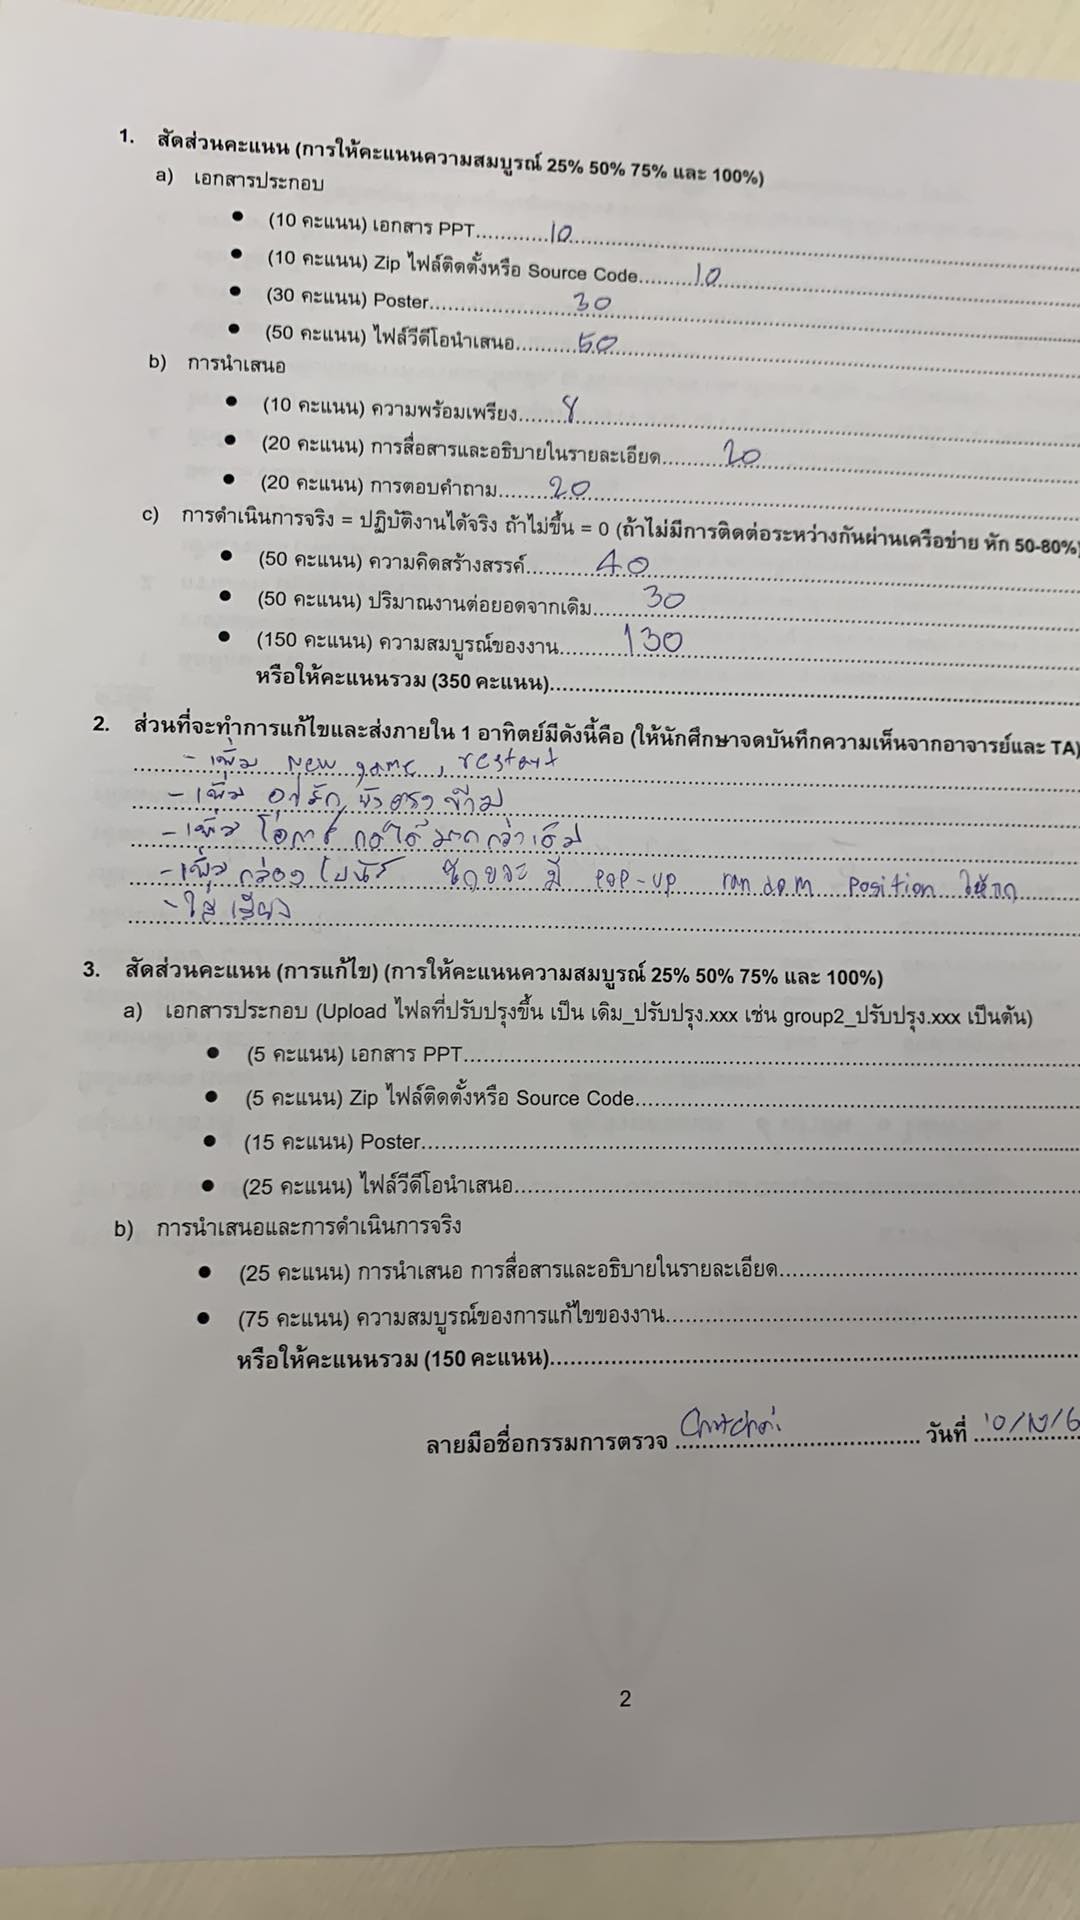 1. สัดส่วนคะแนน (การให้คะแนนความสมบูรณ์ 25% 50% 75% และ 100%)
a) เอกสารประกอบ
● (10 คะแนน) เอกสาร PPT............10............
● (10 คะแนน) Zip ไฟล์ติดตั้งหรือ Source Code............10............
● (30 คะแนน) Poster............30............
● (50 คะแนน) ไฟล์วีดีโอนำเสนอ............50............
b) การนำเสนอ
● (10 คะแนน) ความพร้อมเพรียง............8............
● (20 คะแนน) การสื่อสารและอธิบายในรายละเอียด............20............
● (20 คะแนน) การตอบคำถาม............20............
c) การดำเนินการจริง = ปฏิบัติงานได้จริง ถ้าไม่ขึ้น = 0 (ถ้าไม่มีการติดต่อระหว่างกันผ่านเครือข่าย หัก 50-80%)
● (50 คะแนน) ความคิดสร้างสรรค์............40............
● (50 คะแนน) ปริมาณงานต่อยอดจากเดิม............30............
● (150 คะแนน) ความสมบูรณ์ของงาน............130............
หรือให้คะแนนรวม (350 คะแนน)............
2. ส่วนที่จะทำการแก้ไขและส่งภายใน 1 อาทิตย์มีดังนี้คือ (ให้นักศึกษาจดบันทึกความเห็นจากอาจารย์และ TA)
- เพิ่ม New game, restart
- เพิ่ม
- เพิ่ม โอกาส กดได้มากกว่าเดิม
- เพิ่ม กล่อง โบนัส มี pop-up random position ให้กด
- ใส่ เสียง
3. สัดส่วนคะแนน (การแก้ไข) (การให้คะแนนความสมบูรณ์ 25% 50% 75% และ 100%)
a) เอกสารประกอบ (Upload ไฟลที่ปรับปรุงขึ้น เป็น เดิม_ปรับปรุง.xxx เช่น group2_ปรับปรุง.xxx เป็นต้น)
● (5 คะแนน) เอกสาร PPT............
● (5 คะแนน) Zip ไฟล์ติดตั้งหรือ Source Code............
● (15 คะแนน) Poster............
● (25 คะแนน) ไฟล์วีดีโอนำเสนอ............
b) การนำเสนอและการดำเนินการจริง
● (25 คะแนน) การนำเสนอ การสื่อสารและอธิบายในรายละเอียด............
● (75 คะแนน) ความสมบูรณ์ของการแก้ไขของงาน............
หรือให้คะแนนรวม (150 คะแนน)............
ลายมือชื่อกรรมการตรวจ ............ วันที่ ............
2